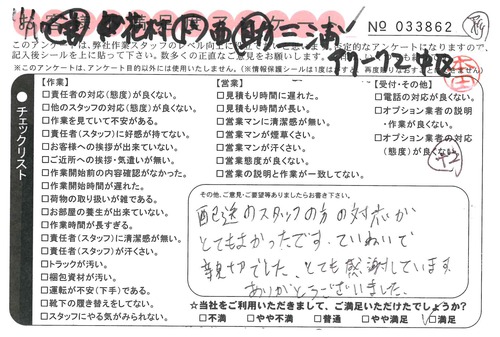 お客様満足度アンケート
No 033862
このアンケートは、弊社作業スタッフのレベル向上に
記入後シールを上に貼って下さい。数多くの正直なご意見をお願いします。
※このアンケートは、アンケート目的以外には使用いたしません。(※情報保護シールは1度はがすと、再度貼りなおすことは
チェックリスト
【作業】
□責任者の対応(態度)が良くない。
□他のスタッフの対応(態度)が良くない。
□作業を見ていて不安がある。
□責任者(スタッフ)に好感が持てない。
□お客様への挨拶が出来ていない。
□ご近所への挨拶・気遣いが無い。
□作業開始前の内容確認がなかった。
□作業開始時間が遅れた。
□荷物の取り扱いが雑である。
□お部屋の養生が出来ていない。
□作業時間が長すぎる。
□責任者(スタッフ)に清潔感が無い。
□責任者(スタッフ)が汗くさい。
□トラックが汚い。
□梱包資材が汚い。
□運転が不安(下手)である。
□靴下の履き替えをしてない。
□スタッフにやる気がみられない。
【営業】
□見積もり時間に遅れた。
□見積もり時間が長い。
□営業マンに清潔感が無い。
□営業マンが煙草くさい。
□営業マンが汗くさい。
□営業態度が良くない。
□営業の説明と作業が一致してない。
【受付・その他】
□電話の対応が良くない。
□オプション業者の説明
・作業が良くない。
□オプション業者の対応
(態度)が良くない。
その他、ご意見・ご要望等ありましたらお書き下さい。
配送のスタッフの方の対応が
とてもよかったです。ていねいで
親切でした、とても感謝しています。
ありがとうございました。
☆当社をご利用いただきまして、ご満足いただけたでしょうか?
□不満 □やや不満 □普通 □やや満足 □満足